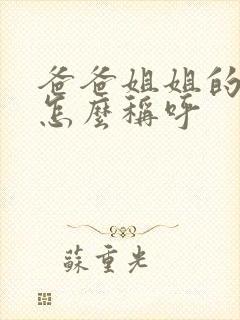 爸爸姐姐的
怎麼稱呼
蘇重光